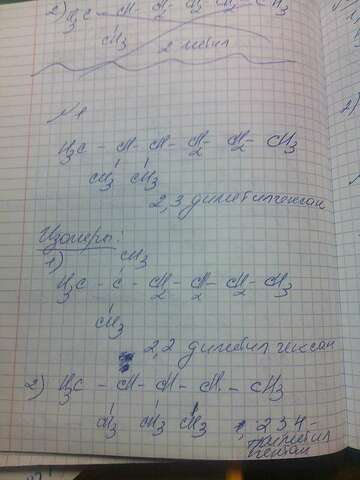 2) H3C - CH - CH2 - CH2 - CH2 - CH3
CH3
2 метил
№1
H3C - CH - CH - CH2 - CH2 - CH3
CH3 CH3
2,3 диметилгексан
Изомеры:
1) CH3
H3C - C - CH2 - CH2 - CH2 - CH3
CH3
2,2 диметил гексан
2) H3C - CH - CH - CH - CH3
CH3 CH3 CH3 2 3 4 -
триметил
пентан